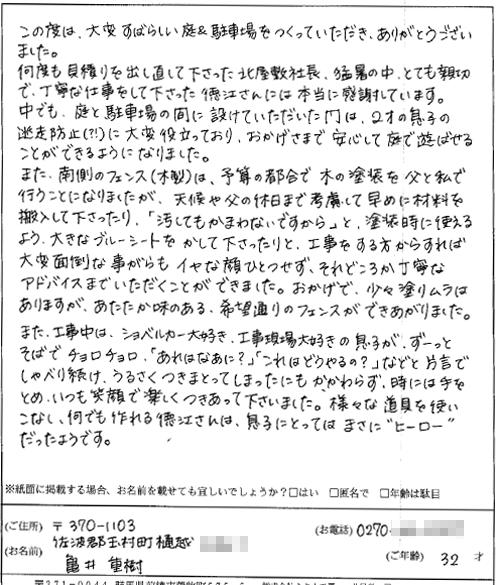 この度は、大変すばらしい庭&駐車場をつくっていただき、ありがとうござい
ました。
何度も見積りを出し直して下さった北屋敷社長、猛暑の中、とても親切
で、丁寧な仕事をして下さった徳江さんには本当に感謝しています。
中でも、庭と駐車場の間に設けていただいた門は、2才の息子の
逃走防止(?!)に大変役立っており、おかげさまで安心して庭で遊ばせる
ことができるようになりました。
また、南側のフェンス(木製)は、予算の都合で木の塗装を父と私で
行うことになりましたが、天候や父の休日まで考慮して早めに材料を
搬入して下さったり、「汚してもかまわないですから」と、塗装時に使える
よう、大きなブルーシートをかして下さったりと、工事をする方からすれば
大変面倒な事がらもイヤな顔ひとつせず、それどころか丁寧な
アドバイスまでいただくことができました。おかげで、少々塗りムラは
ありますが、あたたか味のある、希望通りのフェンスができあがりました。
また、工事中は、ショベルカー大好き、工事現場大好きの息子が、ずーっと
そばでチョロチョロ、「あれはなあに?」「これはどうやるの?」などと片言で
しゃべり続け、うるさくつきまとってしまったにもかかわらず、時には手を
とめ、いつも笑顔で楽しくつきあって下さいました。様々な道具を使い
こなし、何でも作れる徳江さんは、息子にとってはまさに"ヒーロー"
だったようです。
※紙面に掲載する場合、お名前を載せても宜しいでしょうか?□はい □匿名で □年齢は駄目
(ご住所) 〒370-1103 (お電話) 0270-
佐波郡玉村町樋越
(お名前) 亀井 (ご年齢) 32 才